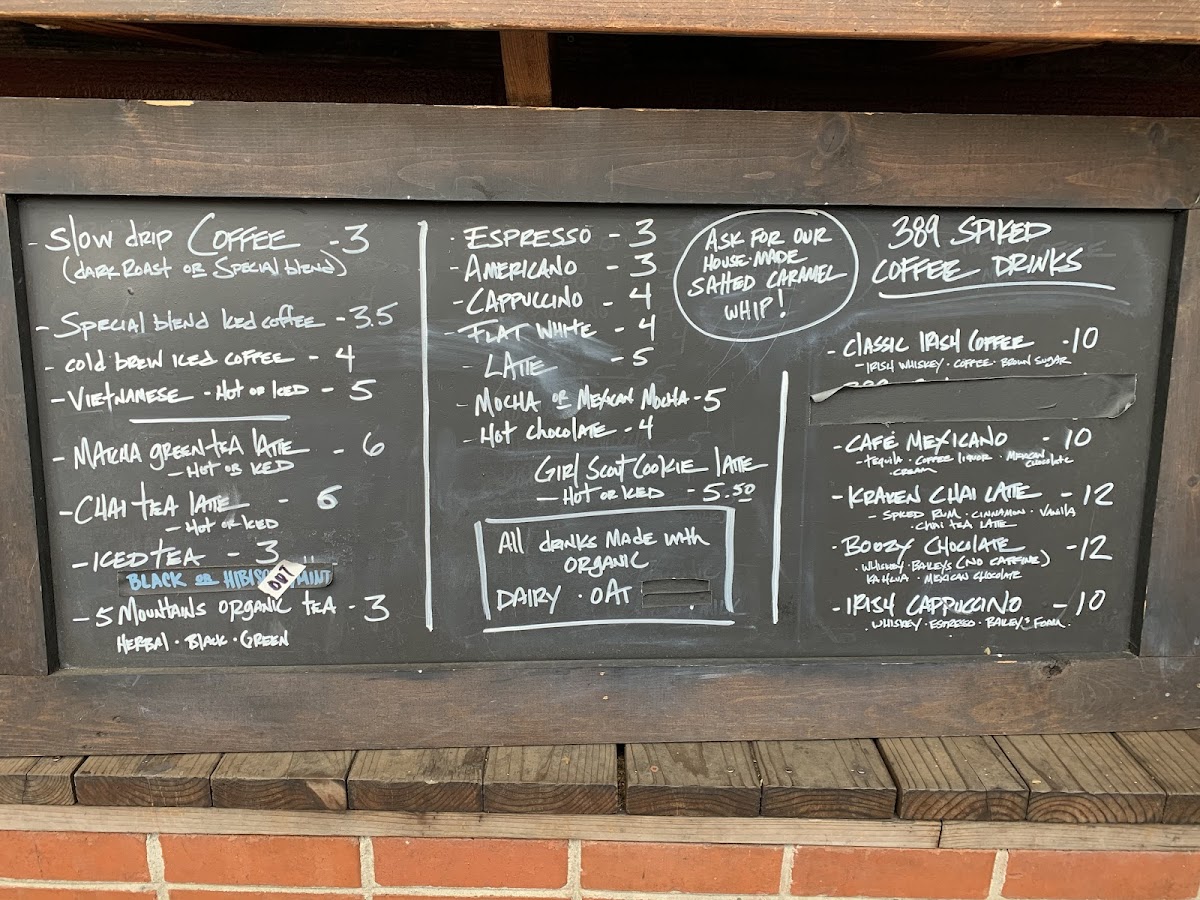 - Slow drip COFFEE - 3
(dark Roast or Special blend)
- Special blend Iced coffee - 3.5
- cold brew iced coffee - 4
- Vietnamese - Hot or Iced - 5
- Matcha green tea latte - 6
- Hot or iced
- Chai tea latte - 6
- Hot or Iced
- Iced tea - 3
BLACK OR MINT
OUT
- 5 Mountains organic tea - 3
Herbal · Black · Green
· ESPRESSO - 3
- AMERICANO - 3
- CAPPUCCINO - 4
- FLAT WHITE - 4
- LATTE - 5
- MOCHA or MEXICAN MOCHA - 5
- Hot chocolate - 4
Girl Scout Cookie latte
- Hot or Iced - 5.50
All drinks made with
organic
DAIRY · OAT
ASK FOR OUR
HOUSE-MADE
SALTED CARAMEL
WHIP!
389 SPIKED
COFFEE DRINKS
- CLASSIC IRISH COFFEE - 10
- IRISH WHISKEY · COFFEE · BROWN SUGAR
- CAFÉ MEXICANO - 10
- TEQUILA · COFFEE LIQUOR · MEXICAN chocolate
CREAM
- KRAKEN CHAI LATTE - 12
- SPICED RUM · CINNAMON · VANILA
· CHAI TEA LATTE
· BOOZY CHOCOLATE - 12
· WHISKEY · BAILEYS (NO CAFFEINE)
KAHLUA · MEXICAN CHOCOLATE
- IRISH CAPPUCCINO - 10
· WHISKEY · ESPRESSO · BAILEYS FOAM.